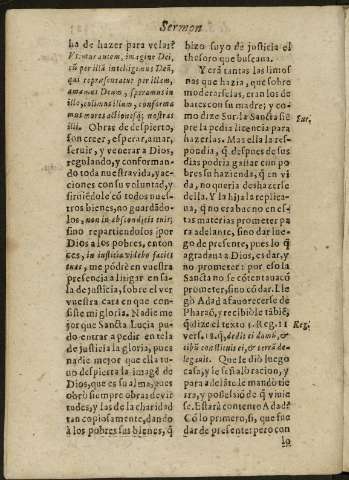 Sermon
ha de hazer para velar?
Vtimur autem, imagine Dei,
cũ per illã intelligimus Deũ,
qui repræsentatur per illam,
amamus Deum, speramus in
illo, colimus illum, conforma
mus mores actionesq; nostras
illi. Obras de despierto,
son creer, esperar, amar,
seruir, y venerar a Dios,
regulando, y conforman-
do toda nuestra vida, y ac-
ciones con su voluntad, y
siruiẽdole cõ todos nues-
tros bienes, no guardãdo-
los, non in absconditis tuis;
sino repartiendolos por
Dios a los pobres, enton
ces, in iustitia videbo faciẽ
tuam, me põdrè en vuestra
presencia a litigar en sa-
la de justicia, sobre el ver
vuestra cara en que con-
siste mi gloria. Nadie me
jor que Santa Lucia pu-
do entrar a pedir en tela
de justicia la gloria, pues
nadie mejor que ella tu-
uo despierta la imagẽ de
Dios, que es su alma, pues
obrò siempre obras de vir
tudes, y las de la charidad
tan copiosamente, dando
à los pobres sus bienes, q̃
hizo suyo de justicia el
thesoro que buscaua.
Y erã tantas las limos
nas que hazia, que sobre
moderarselas, eran los de
bates con su madre; y co-
mo dize Sur. la Santa siẽ
pre la pedia licencia para
hazerlas. Mas ella la res-
pondia, q̃ despues de sus
dias podria gastar con po
bres su hazienda, q̃ en vi
da, no queria deshazerse
della. Y la hija la replica-
ua, q̃ no era bueno en es-
tas materias prometer pa
ra adelante, sino dar lue-
go de presente, pues lo q̃
agradaua a Dios, es dar, y
no prometer: por esso la
Santa no se cõtentaua cõ
prometer, sino cõ dar. Lle
gò Adad a fauorecerse de
Pharaõ, y recibiole tãbiẽ,
q̃ dize el texto 3. Reg. 11
vers. 18. q̃, dedit ei domũ, &
cibũ constituit ei, & terrã de-
legauit. Que le diò luego
casa, y se señalò racion, y
para adelãte le mandò tie
rra, y possesiõ de q̃ viuie
se. Estarà contento Adad?
Cõ lo primero, si, que fue
dar de presente: pero con
lo
Sur.
Reg.